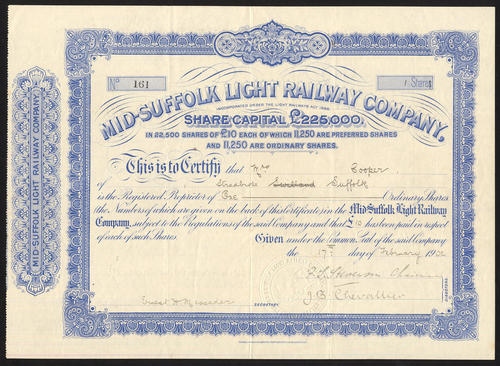 MID-SUFFOLK LIGHT RAILWAY COMPANY.
No 161
1 Shares
MID-SUFFOLK LIGHT RAILWAY COMPANY,
INCORPORATED UNDER THE LIGHT RAILWAYS ACT 1896.
SHARE CAPITAL £225,000.
IN 22,500 SHARES OF £10 EACH OF WHICH 11,250 ARE PREFERRED SHARES
AND 11,250 ARE ORDINARY SHARES.
This is to Certify that Mrs Cooper
of Suffolk
is the Registered Proprietor of One Ordinary Shares
(the Numbers of which are given on the back of this Certificate) in the Mid-Suffolk Light Railway
Company, subject to the Regulations of the said Company and that £10 has been paid in respect
of each of such Shares.
Given under the Common Seal of the said Company
the 17th day of February 1902
Chairman
J.B. Chevallier
SECRETARY
DIRECTORS